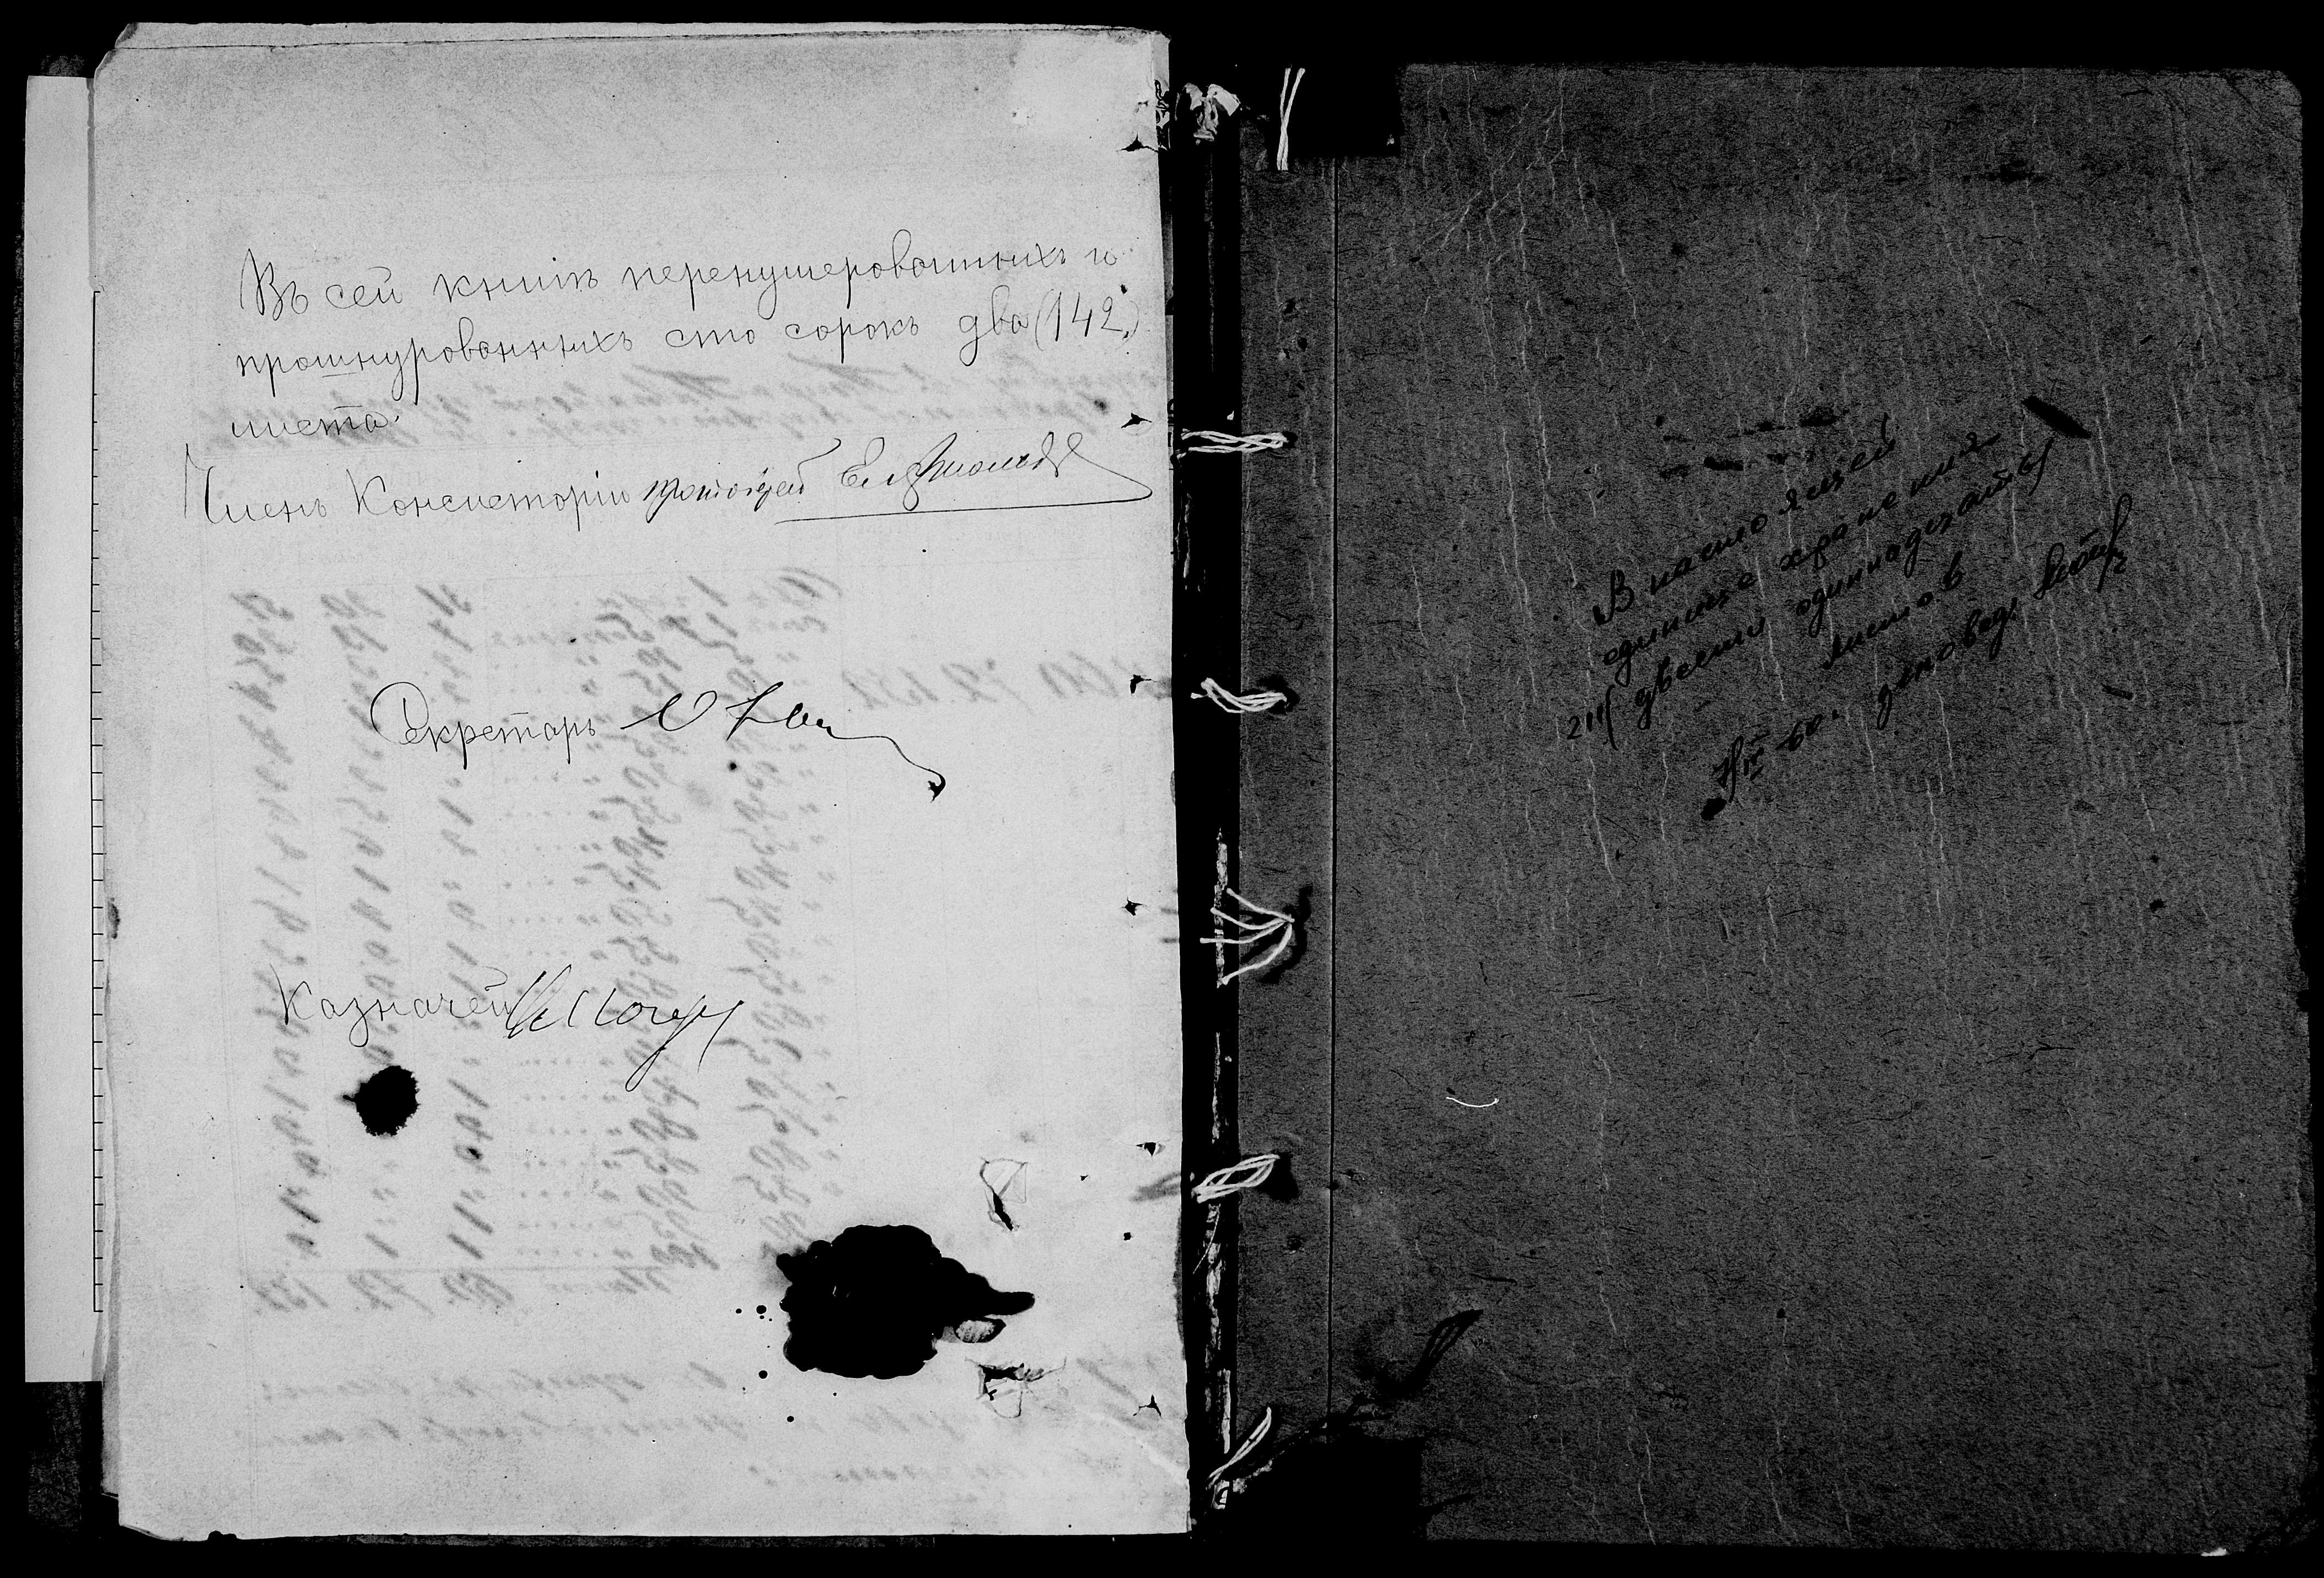 Въ сей книгѣ перенумерованныхъ и
прошнурованныхъ сто сорокъ два (142)
листа.
Членъ Консисторіи протоіерей
Секретарь
Казначей
В настоящей
единице хранения
211/ двести одиннадцать/
листов
60г. деловод.